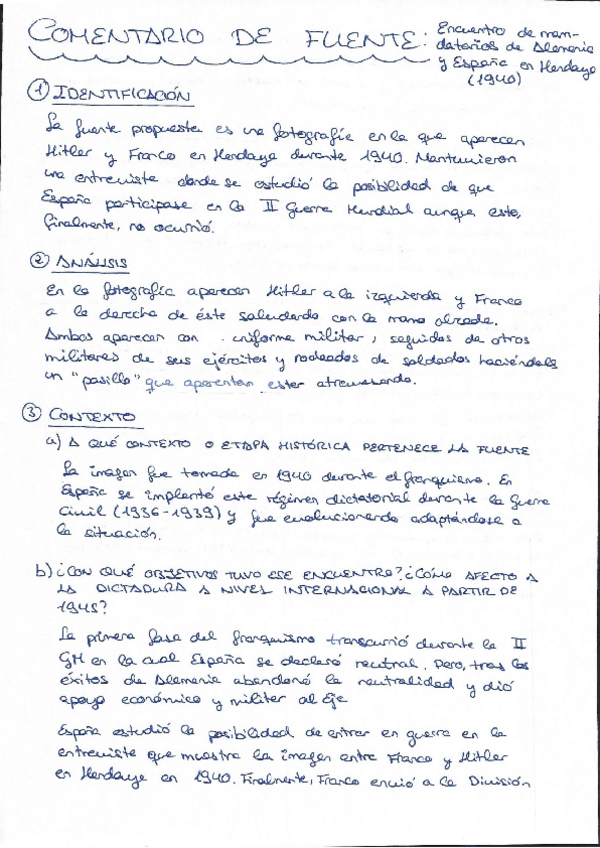 COMENTARIO DE FUENTE: Encuentro de man-
datarios de Alemania
y España en Hendaya
(1940)
① IDENTIFICACIÓN
La fuente propuesta es una fotografía en la que aparecen
Hitler y Franco en Hendaya durante 1940. Mantuvieron
una entrevista donde se estudió la posibilidad de que
España participase en la II Guerra Mundial aunque este,
finalmente, no ocurrió.
② ANÁLISIS
En la fotografía aparecen Hitler a la izquierda y Franco
a la derecha de éste saludando con la mano alzada.
Ambos aparecen con uniforme militar, seguidos de otros
militares de sus ejércitos y rodeados de soldados haciéndoles
un "pasillo" que aparentan estar atravesando.
③ CONTEXTO
a) A QUÉ CONTEXTO O ETAPA HISTÓRICA PERTENECE LA FUENTE
La imagen fue tomada en 1940 durante el franquismo. En
España se implantó este régimen dictatorial durante la Guerra
Civil (1936-1939) y fue evolucionando adaptándose a
la situación.
b) ¿CON QUÉ OBJETIVOS TUVO ESE ENCUENTRO? ¿CÓMO AFECTO A
LA DICTADURA A NIVEL INTERNACIONAL A PARTIR DE
1945?
La primera fase del franquismo transcurrió durante la II
GM en la cual España se declaró neutral. Pero, tras los
éxitos de Alemania abandonó la neutralidad y dió
apoyo económico y militar al Eje
España estudió la posibilidad de entrar en guerra en la
entrevista que muestra la imagen entre Franco y Hitler
en Hendaya en 1940. Finalmente, Franco envió a la División